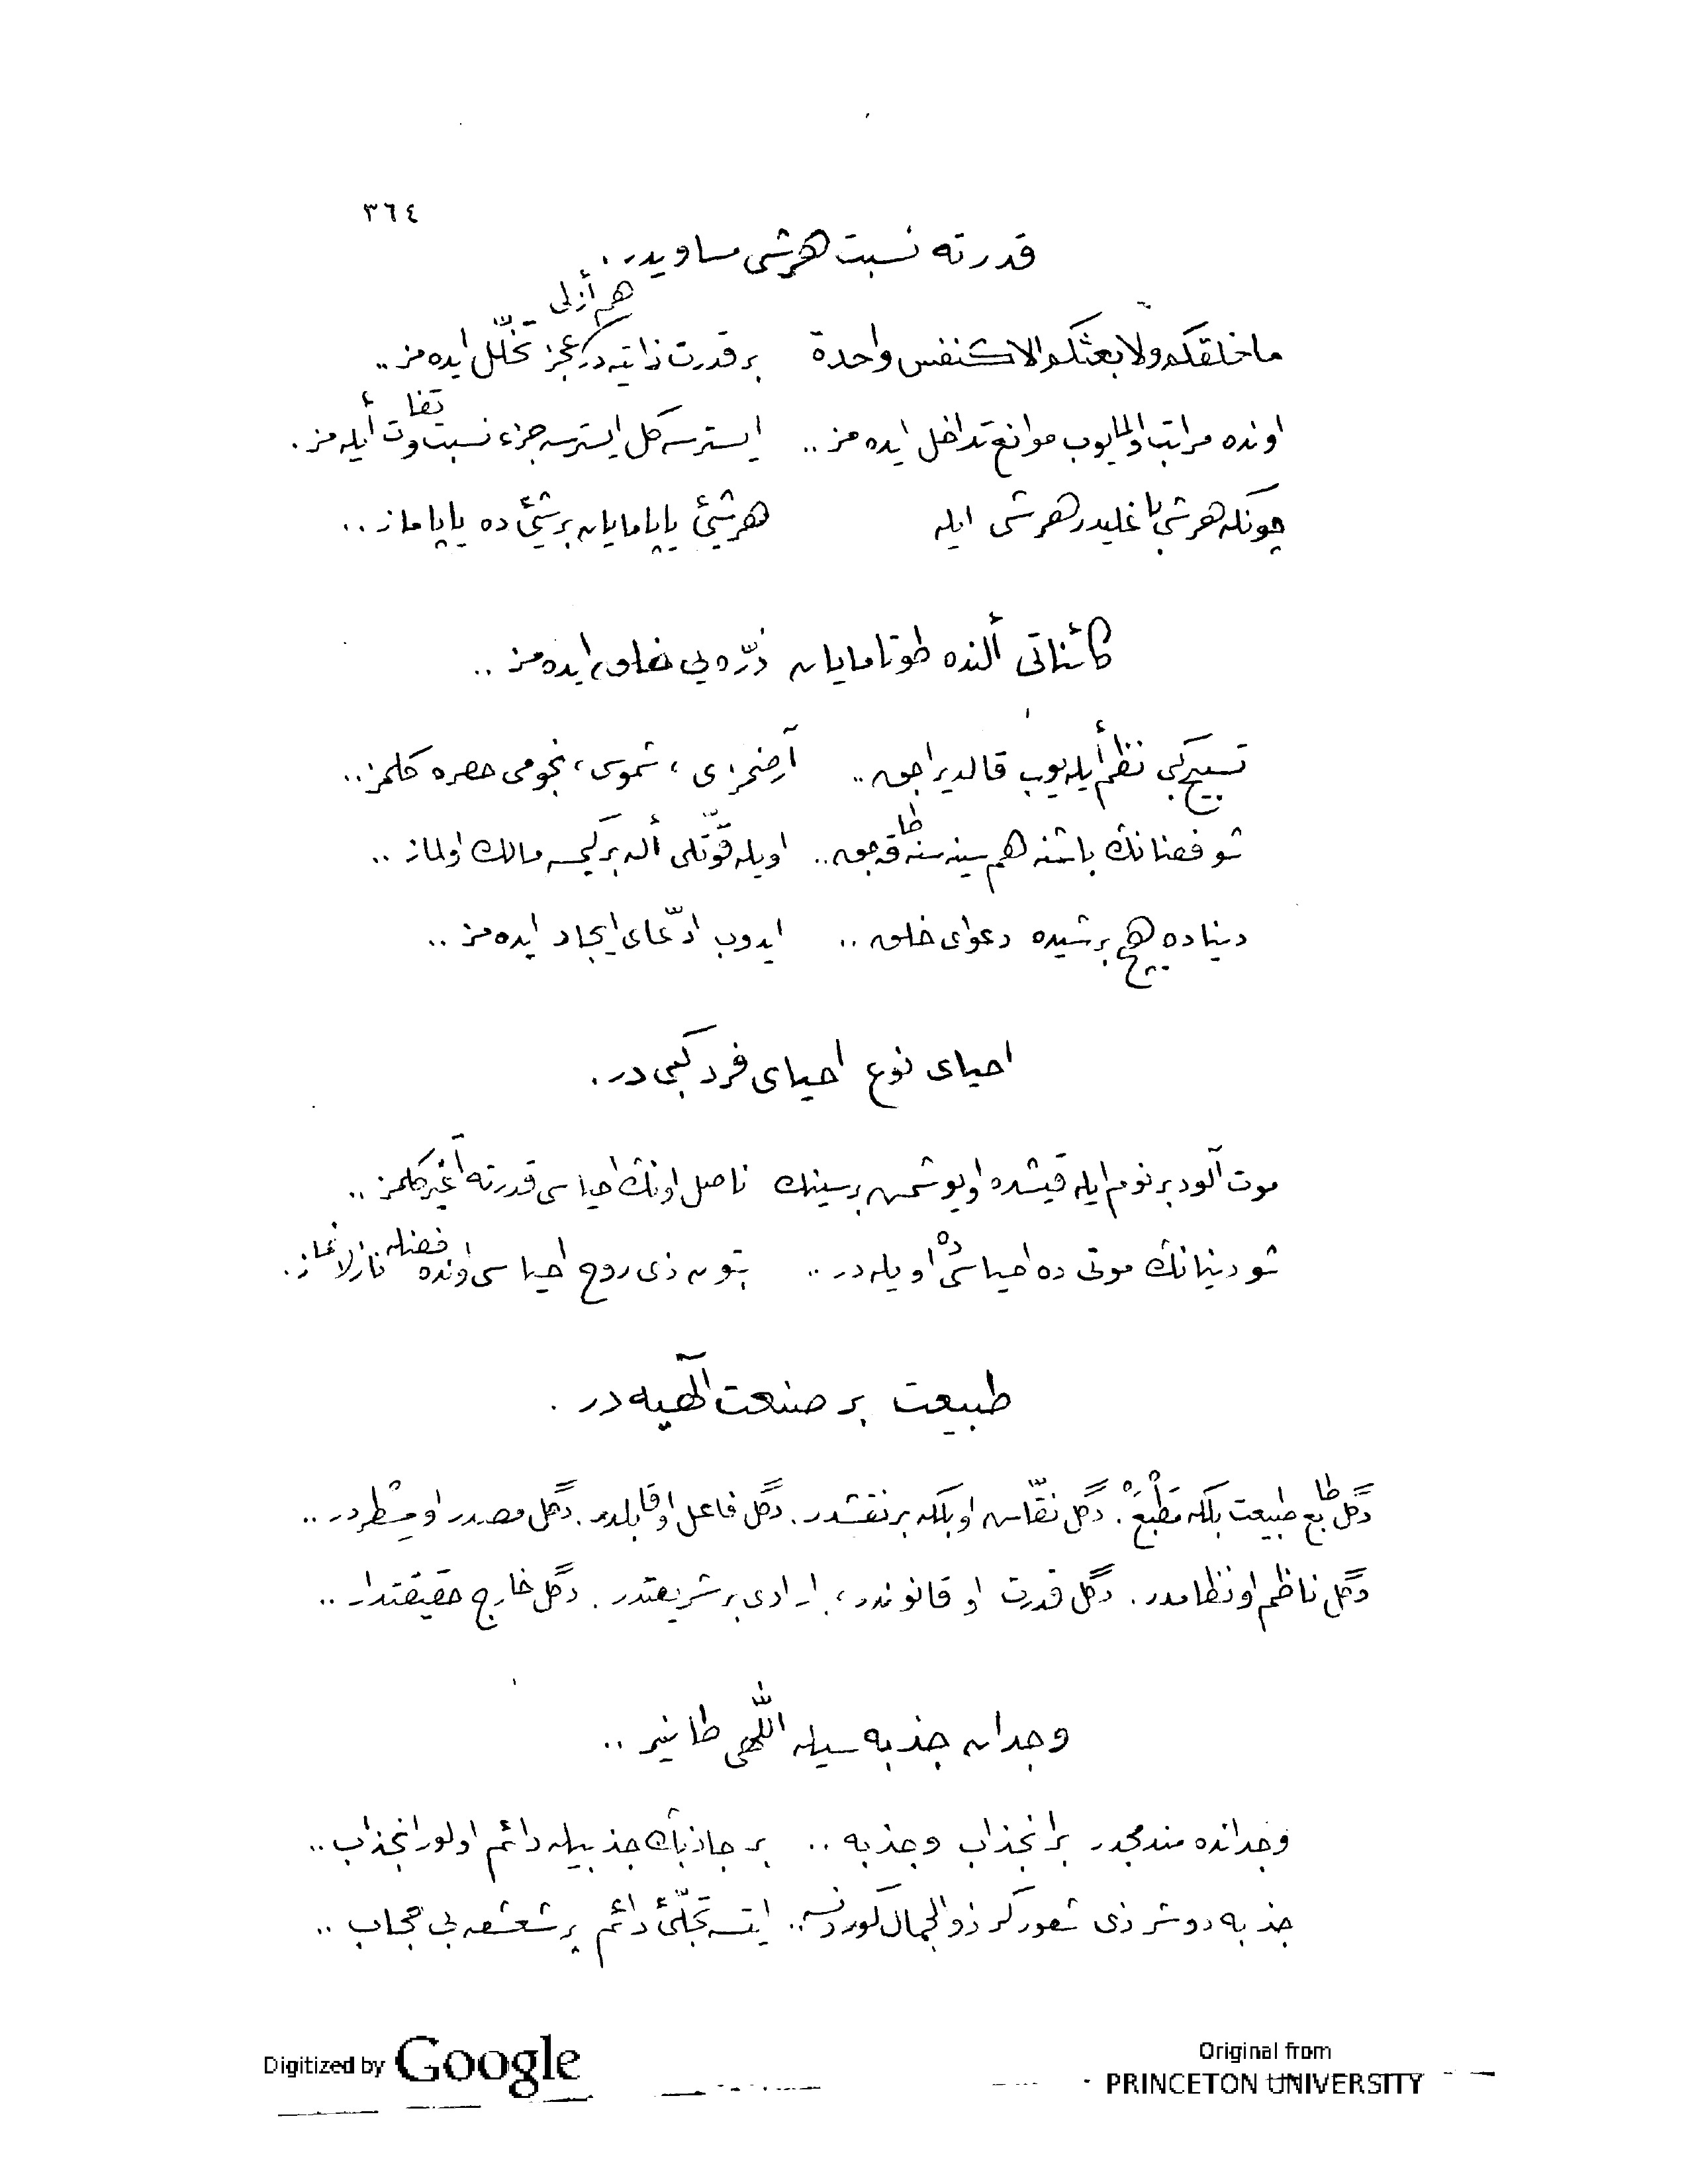 ٣٦٤
قدرته نسبت هرشی مساویدر.
ما خلقكم ولا بعثكم الا كنفس واحدة    بر قدرت ذاتیه در هم أزلی عجز تخلّل ایده مز..
اونده مراتب اولمایوب موانع تداخل ایده مز..    ایسترسه كل ایسترسه جزء نسبت تفاوت أیله مز.
چونكه هرشی باغلیدر هرشی ایله    هرشیئی یاپامایان برشیئی ده یاپاماز..
كائناتی ألنده طوتامایان ذرّه یی خلق ایده مز..
تسبیح كبی نظم أیله یوب قالدیراجق..    أرضمزی، شموسی، نجومی حصره كلمز..
شو فضانك باشنه هم سینه سنه طاقه جق..    اویله قوّتلی أله بر كیمسه مالك اولماز..
دنیاده هیچ برشیده دعوای خلق..    ایدوب ادّعای ایجاد ایده مز..
احیای نوع احیای فرد كبی در.
موت آلود بر نوم ایله قیشده اویوشمش بر سینك    ناصل اونك احیاسی قدرته آغیر كلمز..
شو دنیانك موتی ده احیاسی ده اویله در..    بتون ذی روح احیاسی اونده فضله نازلانماز.
طبیعت بر صنعت الٓهیه در.
دگل طابع طبیعت بلكه مَطْبَعْ. دگل نقّاش او بلكه بر نقشدر. دگل فاعل او قابلدر. دگل مصدر او مسطردر..
دگل ناظم او نظامدر. دگل قدرت او قانوندر، ارادی بر شریعتدر. دگل خارج حقیقتدار..
وجدان جذبه سیله اللّهی طانیر..
وجدانده مندمجدر بر انجذاب وجذبه..    بر جاذبك جذبیله دائم اولور انجذاب..
جذبه دوشر ذی شعور گر ذوالجمال گورونسه..    ایتسه تجلّئ دائم پر شعشعه بی حجاب..
Digitized by Google
Original from
PRINCETON UNIVERSITY